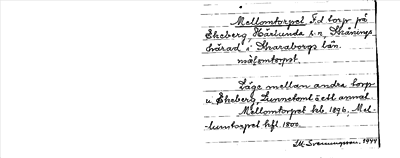 Mellomtorpet F.d torp på
Ekeberg, Härlunda s:n, Skånings
härad i Skaraborgs län.
mäłomtorpət.
Läge mellan andra torp
u. Ekeberg, Sunnetomt o ett annat.
Mellomtorpet hfl. 1896, Mel-
lumtorpet hfl. 1800.
Svenungsson. 1944